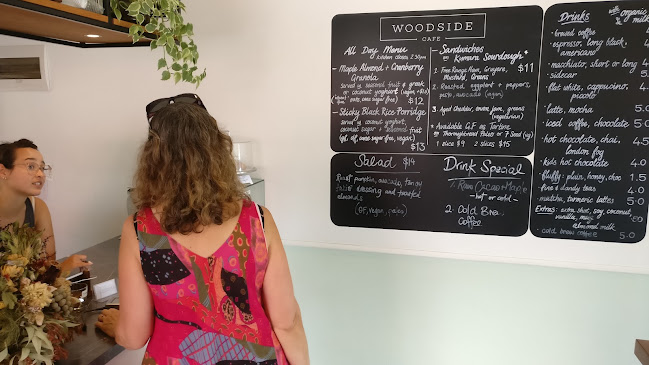 WOODSIDE
CAFE
All Day Menu
kitchen closes 2:30pm
- Maple Almond + Cranberry
Granola
served w seasonal fruit +
or coconut yoghurt
$12
- Sticky Black Rice Porridge
served w coconut yoghurt,
coconut sugar + seasonal fruit
$13
- Sandwiches
on Kumara Sourdough *
1. Free Range Ham, Gruyere, $11
Mustard, Greens
2. Roasted eggplant + peppers,
pesto, avocado (vegan)
3. Aged Cheddar, onion jam, greens
(vegetarian)
* Available G.F on Tartine
1 slice $9 2 slices $15
Salad $14
Roast pumpkin, avocado, tangy
dressing and toasted
almonds
(GF, vegan, paleo)
Drink Special
1. Raw Cacao
- hot or cold -
2. Cold Brew
Coffee
Drinks
w organic
milk
• brewed coffee
• espresso, long black, 4
americano
• macchiato, short or long 4
• sidecar
• flat white, cappuccino,
piccolo
• latte, mocha 5.0
• iced coffee, chocolate 5.0
• hot chocolate, chai, 4.5
london fog
• kids hot chocolate 4.0
• fluffy: plain, honey, choc 1.5
• fine & dandy teas 4.0
• matcha, turmeric lattes 5.0
Extras: extra shot, soy, coconut,
vanilla,
almond milk .50
• cold brew coffee 5.0